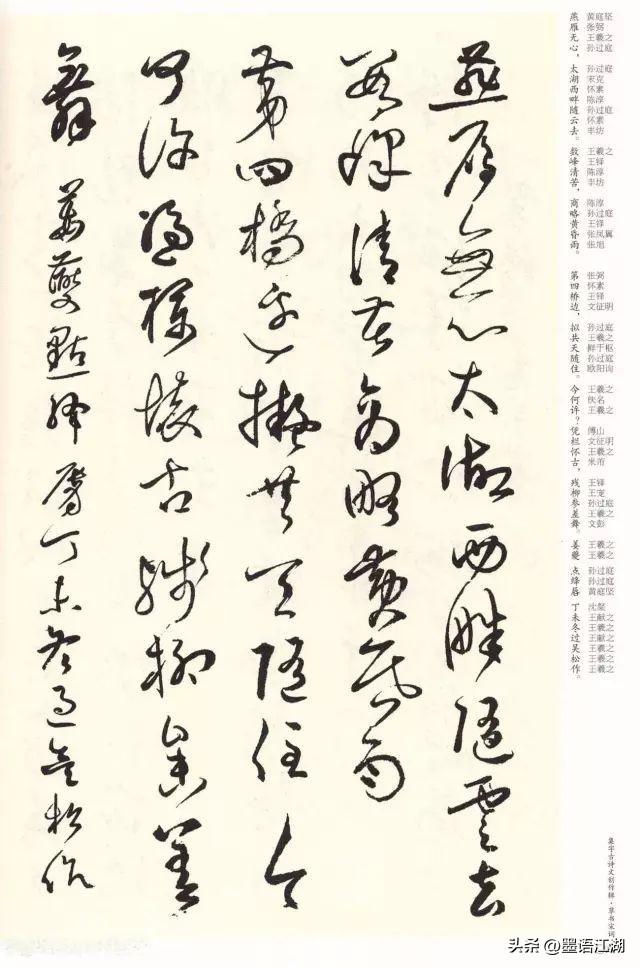 燕雁無心太湖西畔隨雲去
數峰清苦商略黃昏雨
第四橋邊擬共天隨住今
何許憑欄懷古殘柳參差
舞 姜夔點絳唇丁未冬過吳松作
燕雁无心，太湖西畔随云去。数峰清苦，商略黄昏雨。第四桥边，拟共天随住。今何许？凭栏怀古，残柳参差舞。姜夔 点绛唇 丁未冬过吴松作。
黄庭坚 张弼 王羲之 孙过庭 孙过庭 宋克 怀素 陈淳 孙过庭 怀素 丰坊 王羲之 王铎 陈淳 丰坊 陈淳 孙过庭 王铎 张凤翼 张旭 张弼 怀素 王铎 文征明 孙过庭 王羲之 鲜于枢 孙过庭 欧阳询 王羲之 佚名 王羲之 傅山 文征明 王羲之 米芾 王铎 王宠 孙过庭 王羲之 文彭 王羲之 王羲之 孙过庭 孙过庭 黄庭坚 沈粲 王献之 王羲之 王献之 王羲之 王羲之 王羲之
集字古诗文创作辑·草书宋词
头条 @墨语江湖